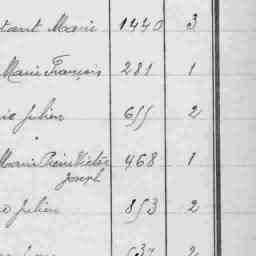 Marie 1440 3
Marie François 281 1
Julien 655 2
Marie Pierre Victor 468 1
Joseph
Julien 853 2
637 2